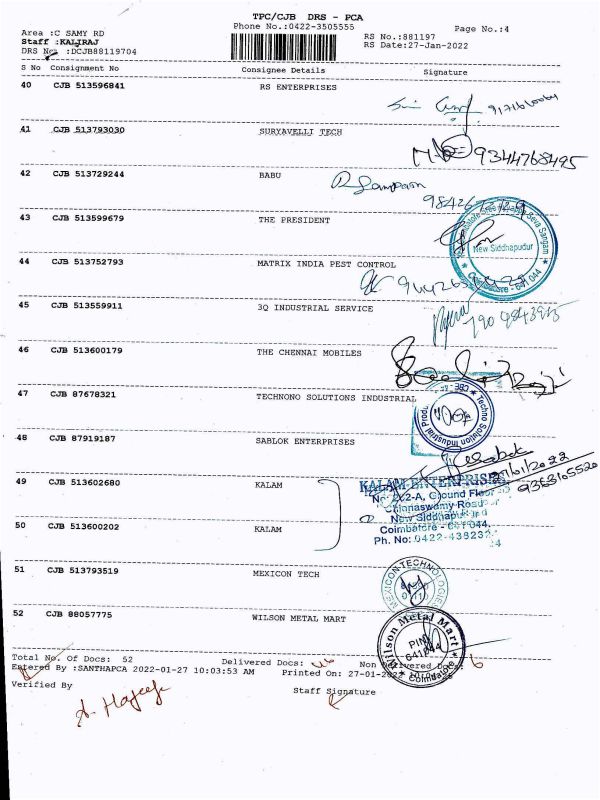 TPC/CJB DRS - PCA
Phone No.:0422-3505555
Page No.:4
Area :C SAMY RD
Staff :KALIRAJ
DRS No. :DCJB88119704
RS No.:881197
RS Date:27-Jan-2022
S No Consignment No Consignee Details Signature
40 CJB 513596841 RS ENTERPRISES
41 CJB 513793030 SURYAVELLI TECH
9344768495
42 CJB 513729244 BABU
43 CJB 513599679 THE PRESIDENT
New Siddhapudur
44 CJB 513752793 MATRIX INDIA PEST CONTROL
45 CJB 513559911 3Q INDUSTRIAL SERVICE
46 CJB 513600179 THE CHENNAI MOBILES
47 CJB 87678321 TECHNONO SOLUTIONS INDUSTRIAL
48 CJB 87919187 SABLOK ENTERPRISES
49 CJB 513602680 KALAM
KALAM ENTERPRISES
Ground Floor
Chinnaswamy Road
New Siddhapudur
Coimbatore - 641 044.
50 CJB 513600202 KALAM
51 CJB 513793519 MEXICON TECH
MEXICON TECHNOLOGIES
52 CJB 88057775 WILSON METAL MART
Wilson Metal Mart
PIN
641044
Coimbatore
Total No. Of Docs: 52 Delivered Docs: 46 Non Delivered Do 6
Entered By :SANTHAPCA 2022-01-27 10:03:53 AM Printed On: 27-01-2022
Verified By Staff Signature